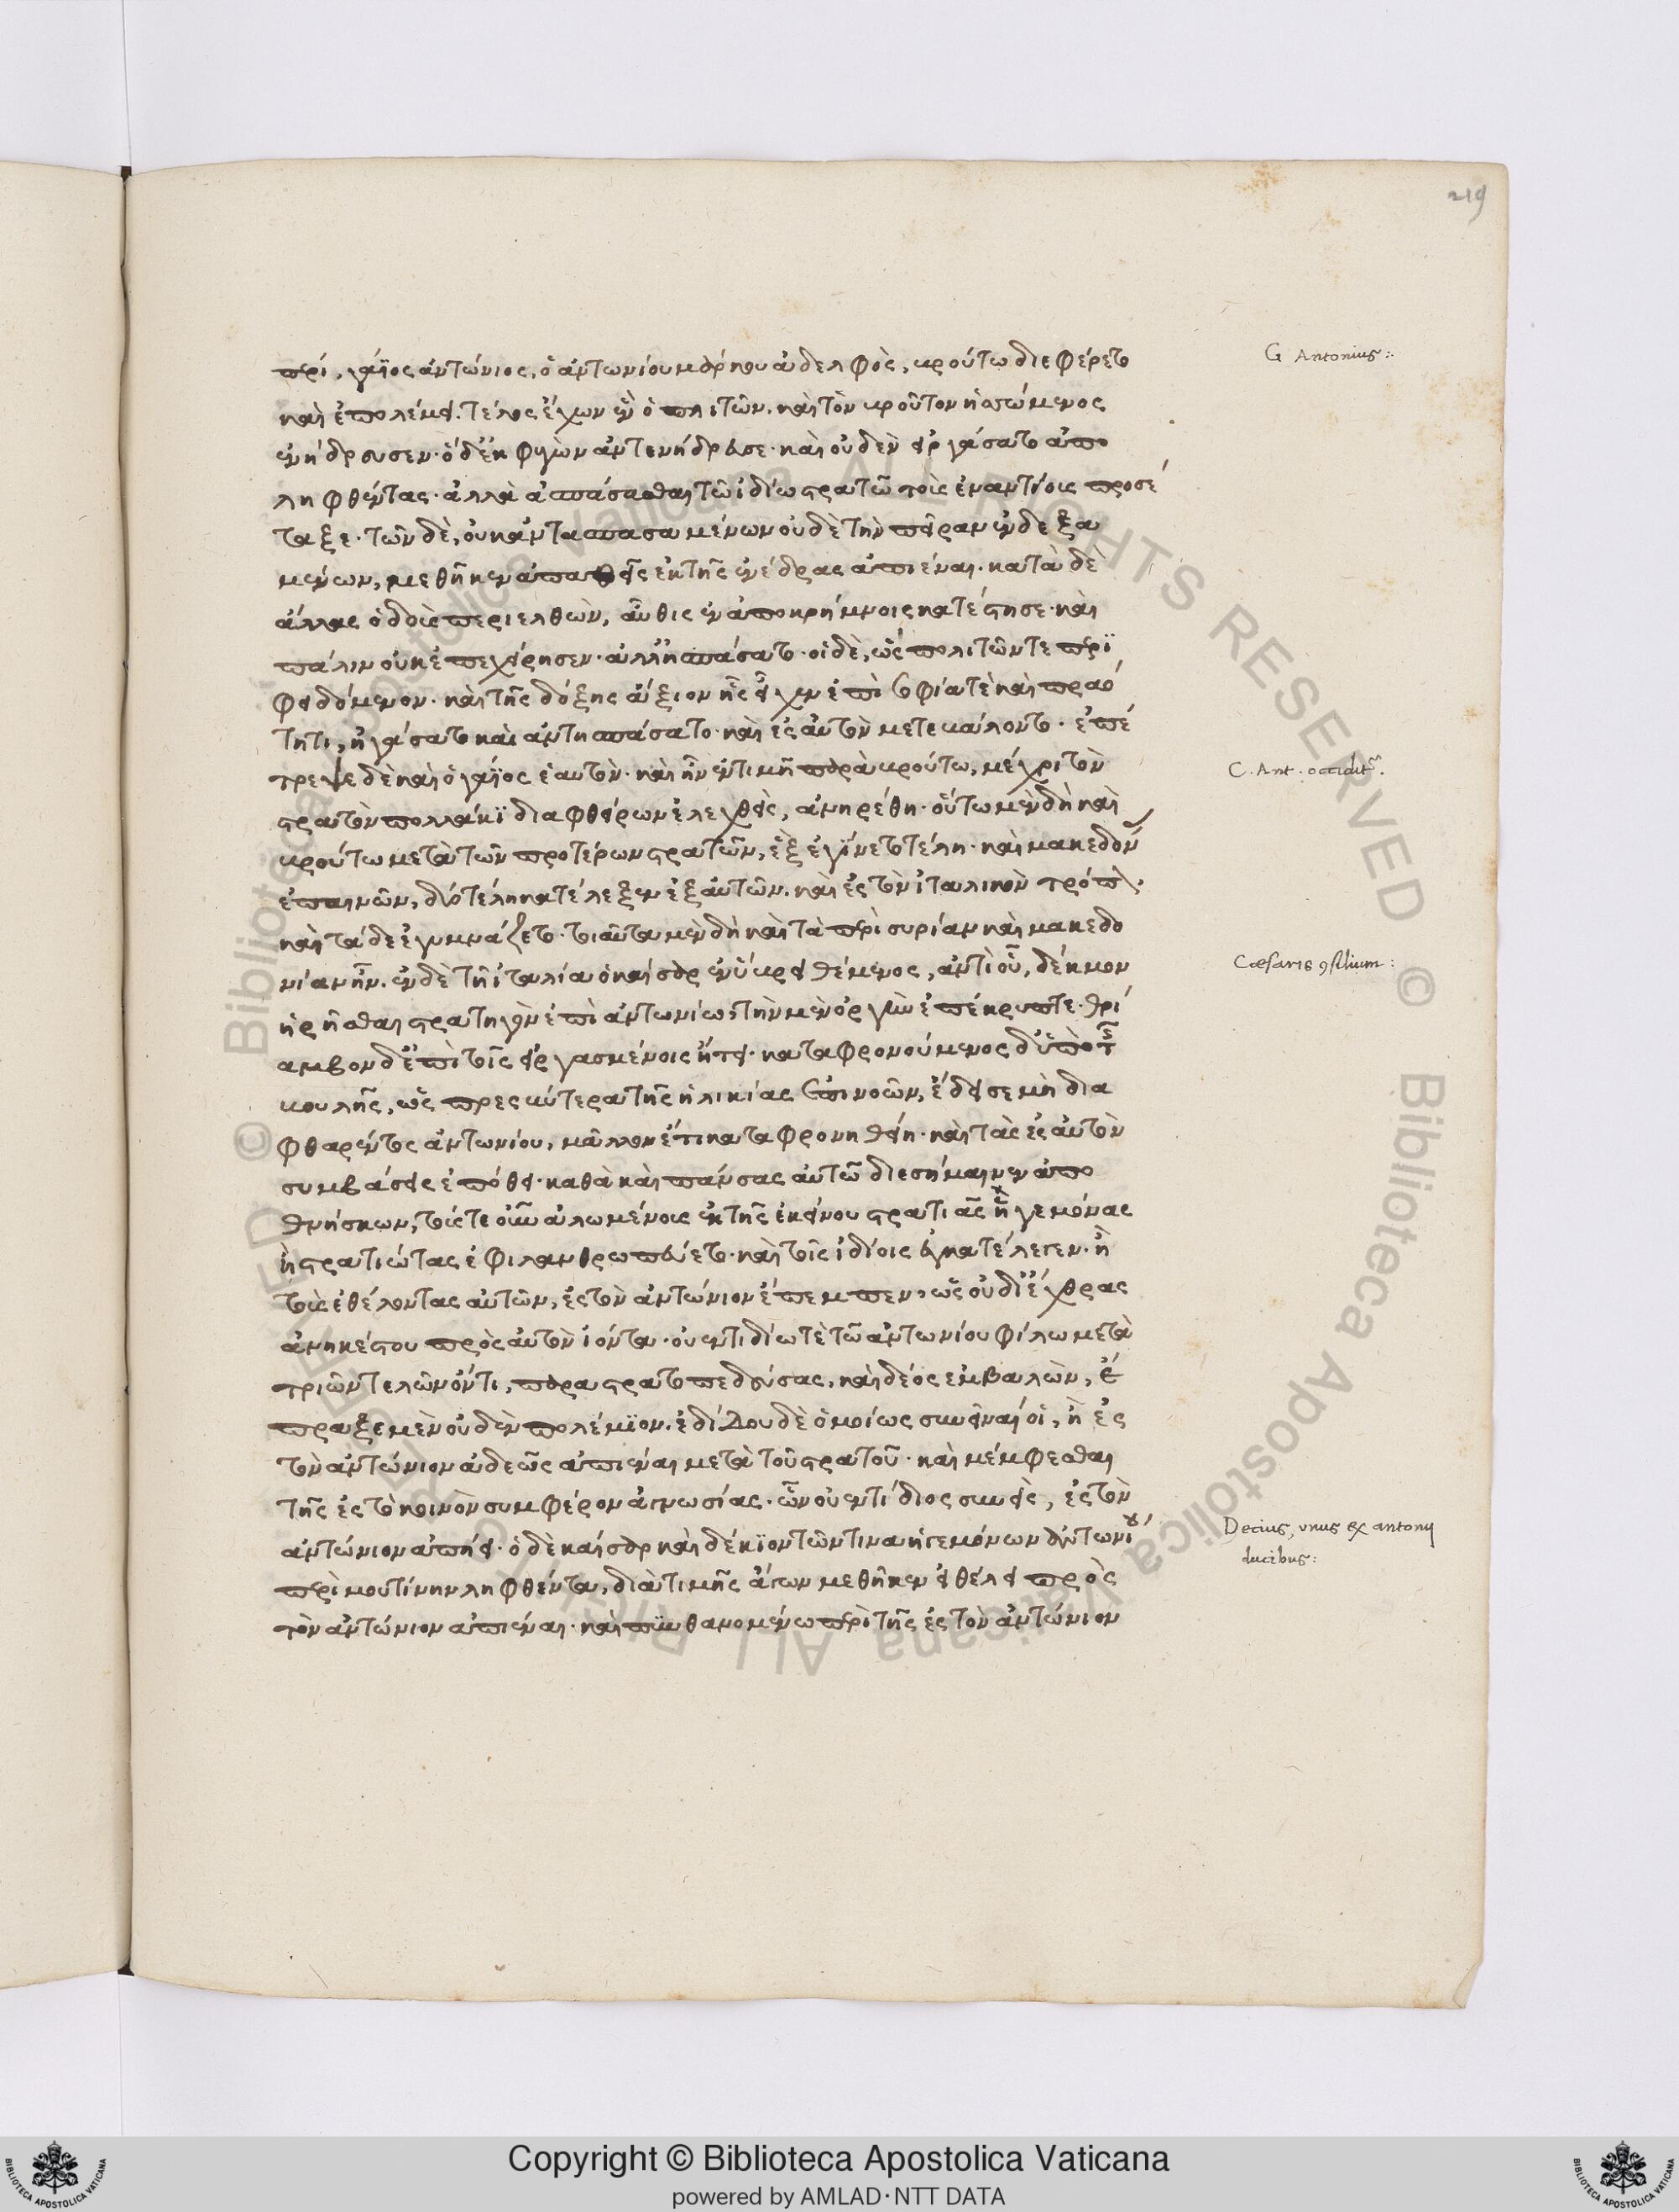 219
περί. γάϊος ἀντώνιος, ὁ ἀντωνίου μάρκου ἀδελφὸς, κρούτω διεφέρετο
καὶ ἐπολέμει. τέλος ἔχων ἓν ὁπλιτῶν. καὶ τὸν κροῦτον ἡσσώμενος
ἐνήδρευσεν· ὁ δ' ἐκφυγὼν ἀντενήδρευσε· καὶ οὐδὲν εἰργάσατο ἀπο
ληφθέντας· ἀλλὰ ἀσπάσασθαι τῶ ἰδίω στρατῶ τοὺς ἐναντίους προσέ
ταξε· τῶν δὲ, οὐκ ἀντασπασαμένων οὐδὲ τὴν πεῖραν ἐνδεξα
μένων, μεθῆκεν ἀπαθεῖς ἐκ τῆς ἐνέδρας ἀπιέναι. κατὰ δὲ
ἄλλας ὁδοὺς περιελθὼν, αὖθις ἐν ἀποκρήμνοις κατέστησε· καὶ
πάλιν οὐκ ἐπεχείρησεν· ἀλλ' ἠσπάσατο· οἱ δὲ, ὡς πολιτῶν τε περι
φειδόμενον· καὶ τῆς δόξης ἄξιον ἧς εἶχεν ἐπὶ σοφίᾳ τὲ καὶ πραό
τητι, ἠγάσατο καὶ ἀντησπάσατο· καὶ ἐς αὐτὸν μετεβάλοντο· ἐπέ
τρεψε δὲ καὶ ὁ γάϊος ἑαυτὸν· καὶ ἦν ἐν τιμῆ παρὰ κρούτω, μέχρι τὸν
στρατὸν πολλάκι διαφθείρων ἐλεγχθεὶς, ἀνηρέθη· οὕτω μὲν δὴ καὶ
κρούτω μετὰ τῶν προτέρων στρατῶν, ἓξ ἐγίνετο τέλη· καὶ μακεδόν
ἐπαινῶν, δύο τέλη κατέλεξεν ἐξ αὐτῶν. καὶ ἐς τὸν ἰταλικὸν τρόπον
καὶ τάδε ἐγυμνάζετο· τοιαῦτα μὲν δὴ καὶ τὰ περὶ συρίαν καὶ μακεδο
νίαν ἦν. ἐν δὲ τῆ ἰταλία ὁ καίσαρ ἐν ὕβρει θέμενος, ἀντὶ οὗ, δέκμον
ἡρῆσθαι στρατηγὸν ἐπὶ ἀντωνίω, τὴν μὲν ὀργὴν ἐπέκρυπτε· θρί
αμβον δ' ἐπὶ τοῖς εἰργασμένοις ἤτει· καταφρονούμενος δ' ὑπὸ τῆς
βουλῆς, ὡς πρεσβύτερα τῆς ἡλικίας ἐπινοῶν, ἔδεισε μὴ δια
φθαρέντος ἀντωνίου, μᾶλλον ἔτι καταφρονηθείη· καὶ τὰς ἐς αὐτὸν
συμβάσεις ἐπόθει· καθὰ καὶ πάνσας αὐτῶ διεσήμαινεν ἀπο
θνήσκων, τούς τε οὖν ἁλωμένους ἐκ τῆς ἐκείνου στρατιᾶς ἢ ἡγεμόνας
ἢ στρατιώτας ἐφιλανθρωπεύετο· καὶ τοῖς ἰδίοις ἐγκατέλεγεν· ἢ
τοὺς ἐθέλοντας αὐτῶν, ἐς τὸν ἀντώνιον ἔπεμπεν, ὡς οὐ δι' ἔχθρας
ἀνηκέστου πρὸς αὐτὸν ἰόντα· οὐεντιδίω τὲ τῶ ἀντωνίου φίλω μετὰ
τριῶν τελῶν ὄντι, παραστρατοπεδεύσας, καὶ δέος ἐμβαλὼν, ἔ
πραξε μὲν οὐδὲν πολέμιον. ἐδίδου δὲ ὁμοίως συνεῖναί οἱ, ἢ ἐς
τὸν ἀντώνιον ἀδεῶς ἀπιέναι μετὰ τοῦ στρατοῦ· καὶ μέμφεσθαι
τῆς ἐς τὸ κοινὸν συμφέρον ἀγνωσίας. ὧν οὐεντίδιος συνεὶς, ἐς τὸν
ἀντώνιον ἀπήει· ὁ δὲ καίσαρ καὶ δέκιον τῶν τινα ἡγεμόνων ἀντωνίου
περὶ μουτίνην ληφθέντα, διὰ τιμῆς ἄγων μεθῆκεν εἰ θέλει πρὸς
τὸν ἀντώνιον ἀπιέναι· καὶ πυνθανομένω περὶ τῆς ἐς τὸν ἀντώνιον
G Antonius:
C. Ant. occidit.
Cæsaris consilium:
Decius, unus ex antonij
ducibus:
Copyright © Biblioteca Apostolica Vaticana
powered by AMLAD·NTT DATA